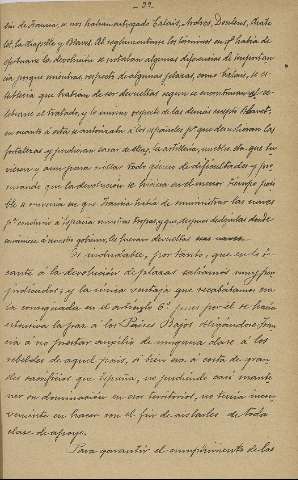 - 22 -
de Francia, a nos habian entregado Calais, Ardres, Doulens, Chate
let, la Capelle y Blavet. Al reglamentarse los términos en qe había de
efectuarse la devolución se notaban algunas diferencias de importan
cia, porque mientras respecto de algunas plazas, como Calais, se es-
tablecía que habrían de ser devueltas segun se encontraban al ce-
lebrarse el tratado, y lo mismo respecto de las demás excepto Blavet,
en cuanto á esta se autorizaba á los españoles pa que demolieran las
fortalezas y pudieran sacar de ellas, la artillería, muebles etc. que tu
viesen y aun para evitar todo género de dificultades y pro
curando que la devolución se hiciera en el menor tiempo posi
ble se convenía en que Francia habia de suministrar las naves
pa conducir á España nuestras tropas, y que, despues de
á nuestro gobierno, les fueran devueltas
Es indudable, por tanto, que en lo to
cante á la devolución de plazas salimos muy per
judicados; y la única ventaja que recabábamos era
la consignada en el artículo 6º pues por él se hacía
extensiva la paz á los Países Bajos obligándose Fran
cia á no prestar auxilio de ninguna clase á los
rebeldes de aquel país, si bien era á costa de gran
des sacrificios que España, no pudiendo casi mante
ner su dominación en esos territorios, no tenía incon
veniente en hacer con el fin de aislarles de toda
clase de apoyo.
Para garantir el cumplimiento de las